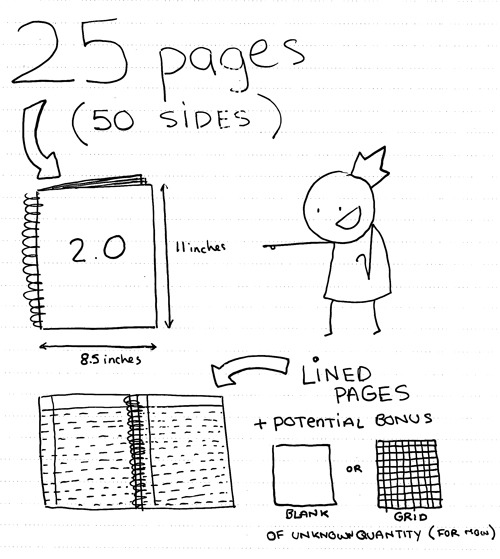 25 pages
(50 SIDES)
2.0
11 inches
8.5 inches
LINED
PAGES
+ POTENTIAL BONUS
OR
BLANK
GRID
OF UNKNOWN QUANTITY (FOR NOW)